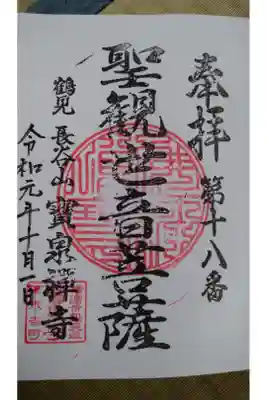 奉拝
第十八番
聖観世音菩薩
鶴見 長谷山 寳泉禅寺
令和元年十月一日